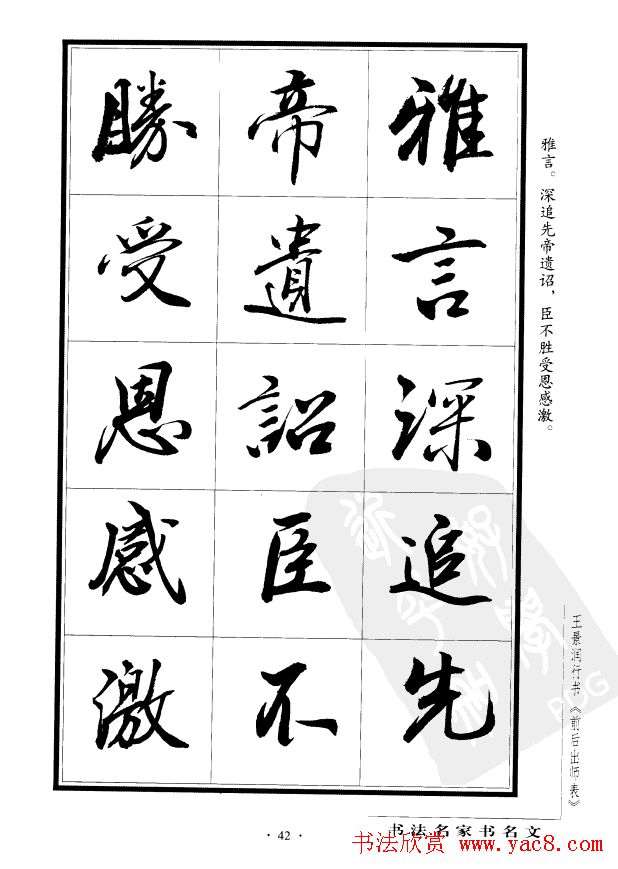 雅言深追先
帝遺詔臣不
勝受恩感激
雅言。深追先帝遗诏，臣不胜受恩感激。
王景润行书《前后出师表》
书法名家书名文
· 42 ·
书法欣赏 www.yac8.com
PDG